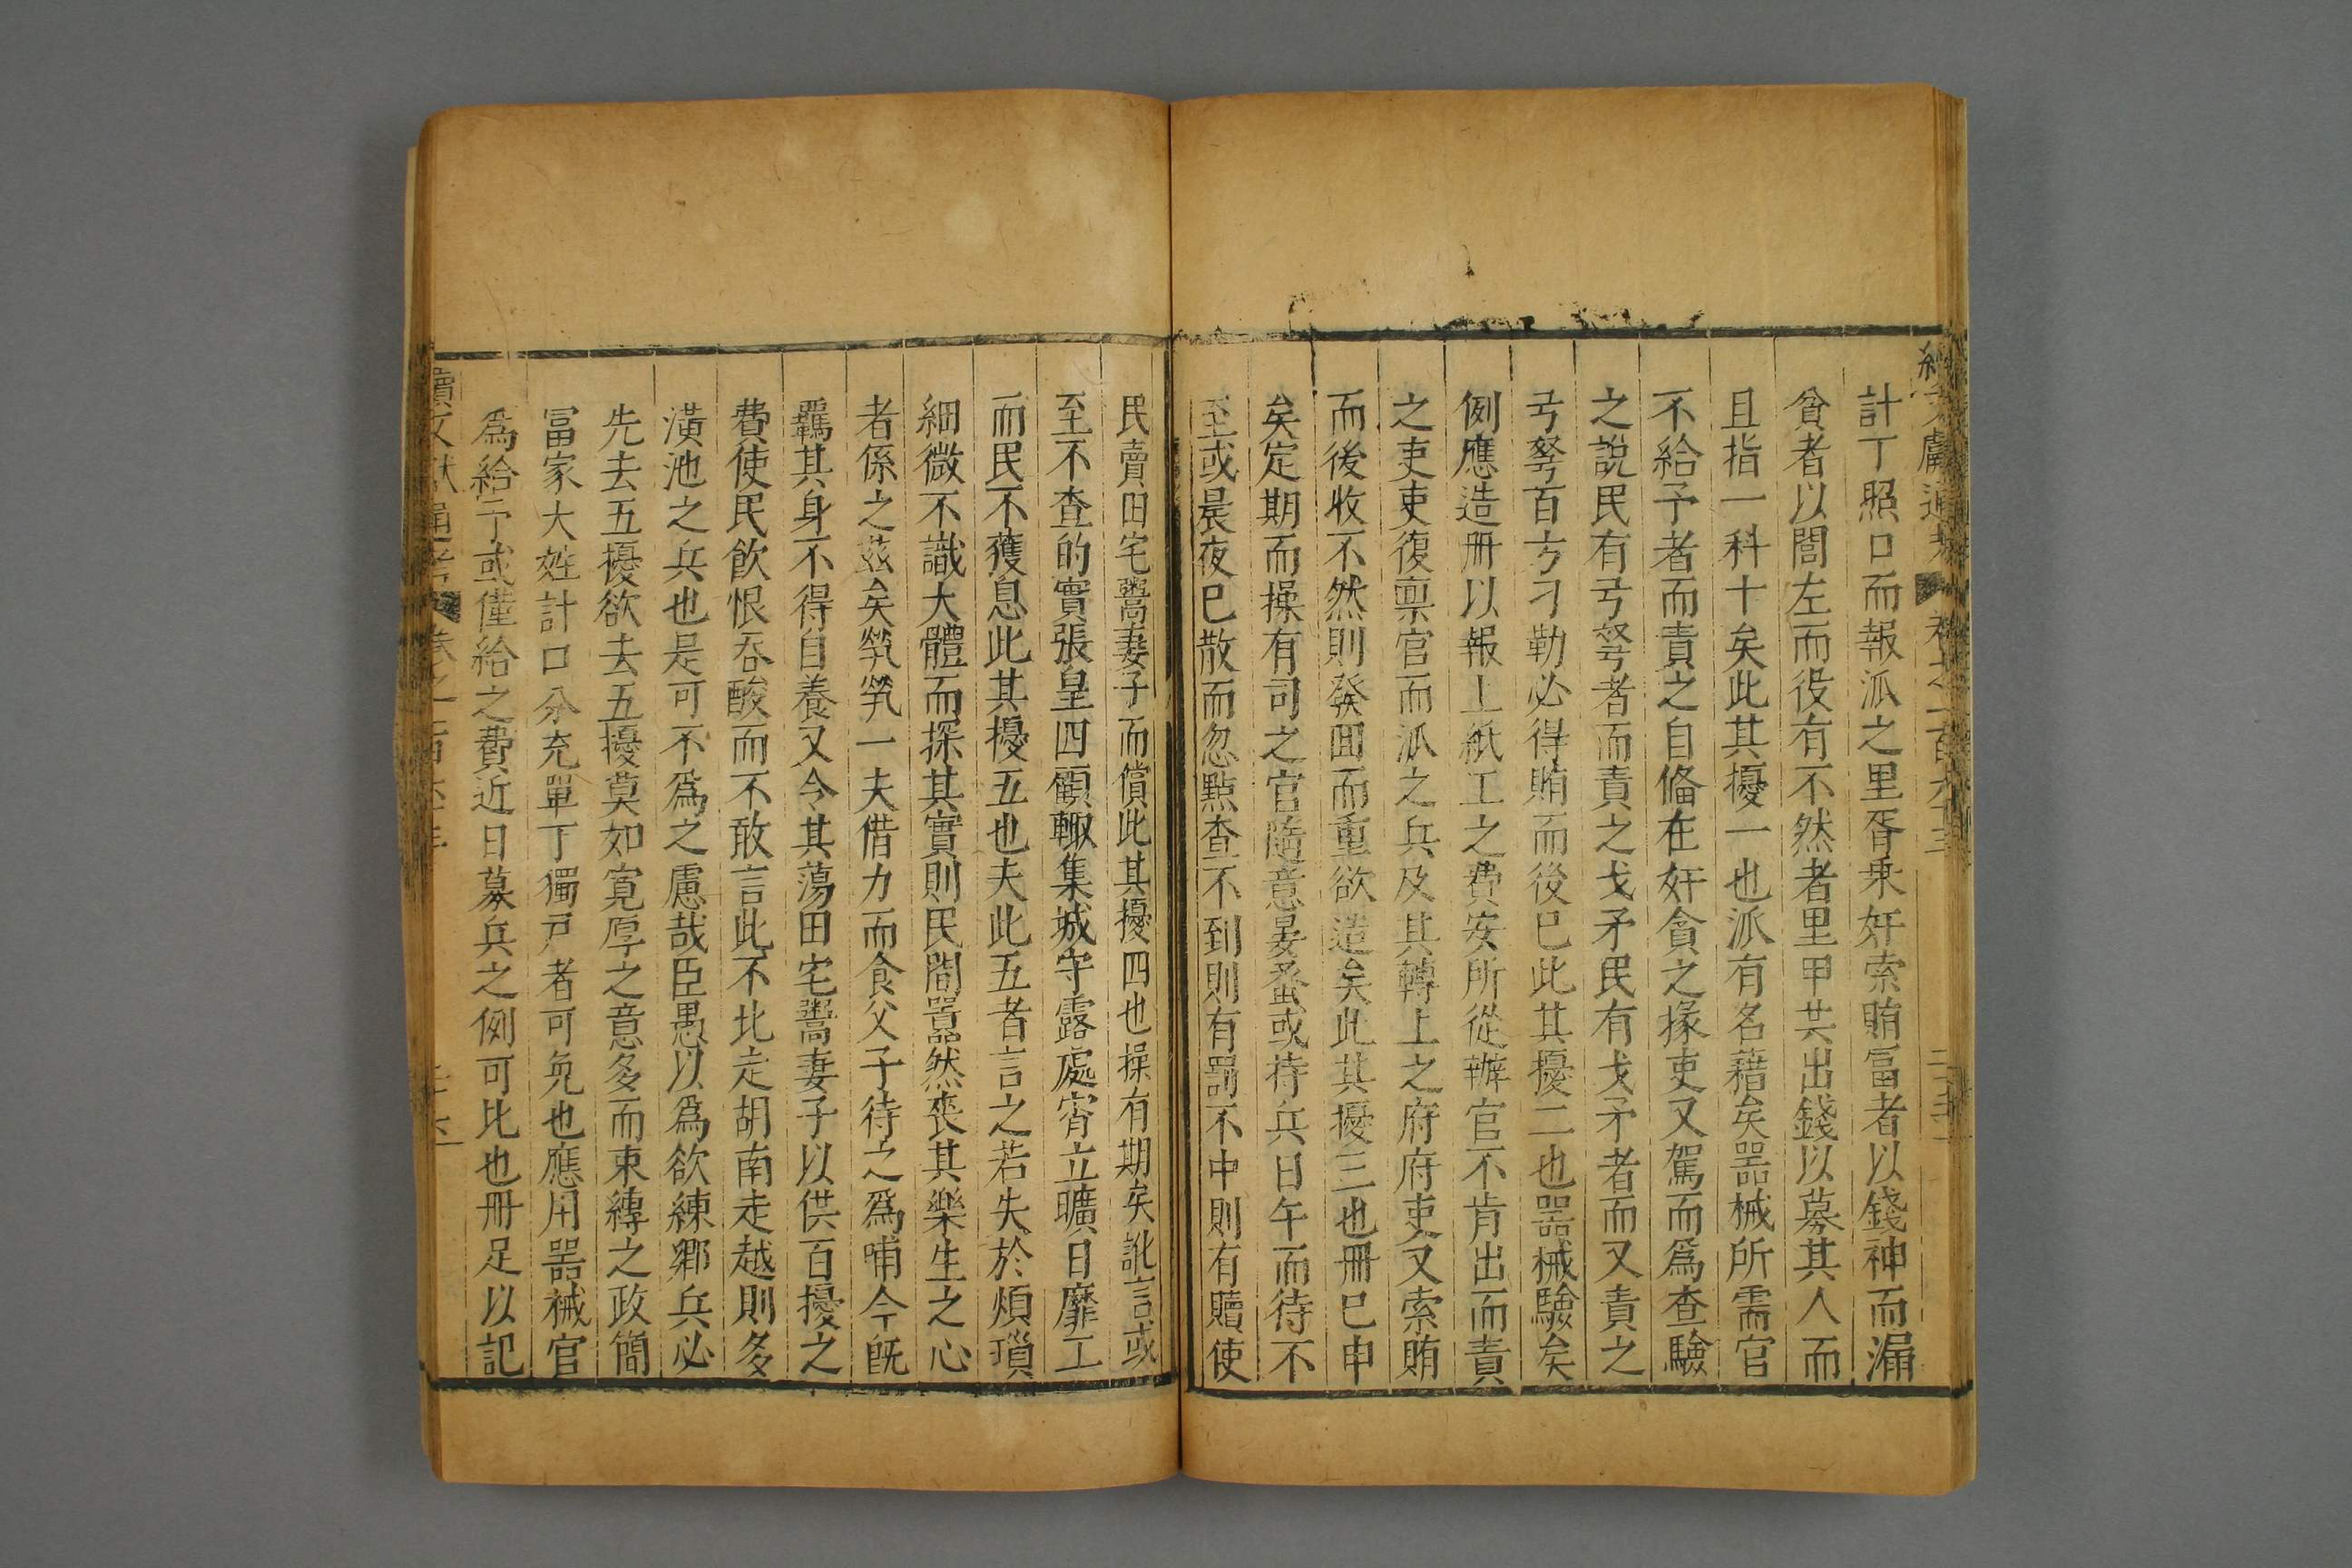 計丁照口而報派之里胥乘奸索賄冨者以錢神而漏
貧者以閭左而役有不然者里甲共出錢以募其人而
且指一科十矣此其擾一也派有名籍矣噐械所需官
不給予者而責之自俻在奸貪之掾吏又駕而爲查驗
之說民有弓弩者而責之戈矛民有戈矛者而又責之
弓弩百方刁勒必得賄而後已此其擾二也噐械驗矣
例應造冊以報上紙工之費安所從辦官不肯出而責
之吏吏復禀官而派之兵及其轉上之府府吏又索賄
而後收不然則發囬而重欲造矣此其擾三也冊已申
矣定期而操有司之官隨意晏蚤或待兵日午而待不
至或晨夜已散而忽㸃查不到則有罰不中則有贖使
民賣田宅鬻妻子而償此其擾四也操有期矣訛言或
至不查的實張皇四顧輙集城守露處宵立曠日靡工
而民不獲息此其擾五也夫此五者言之若失於煩瑣
細微不識大體而探其實則民間嚣然喪其樂生之心
者係之兹矣煢煢一夫借力而食父子待之爲哺今旣
羈其身不得自養又令其蕩田宅鬻妻子以供百擾之
費使民飲恨吞酸而不敢言此不北走胡南走越則多
潢池之兵也是可不爲之慮哉臣愚以爲欲練鄉兵必
先去五擾欲去五擾莫如寛厚之意多而束縛之政簡
冨家大姓計口分充單丁獨戶者可免也應用噐械官
爲給予或僅給之費近日募兵之例可比也冊足以記